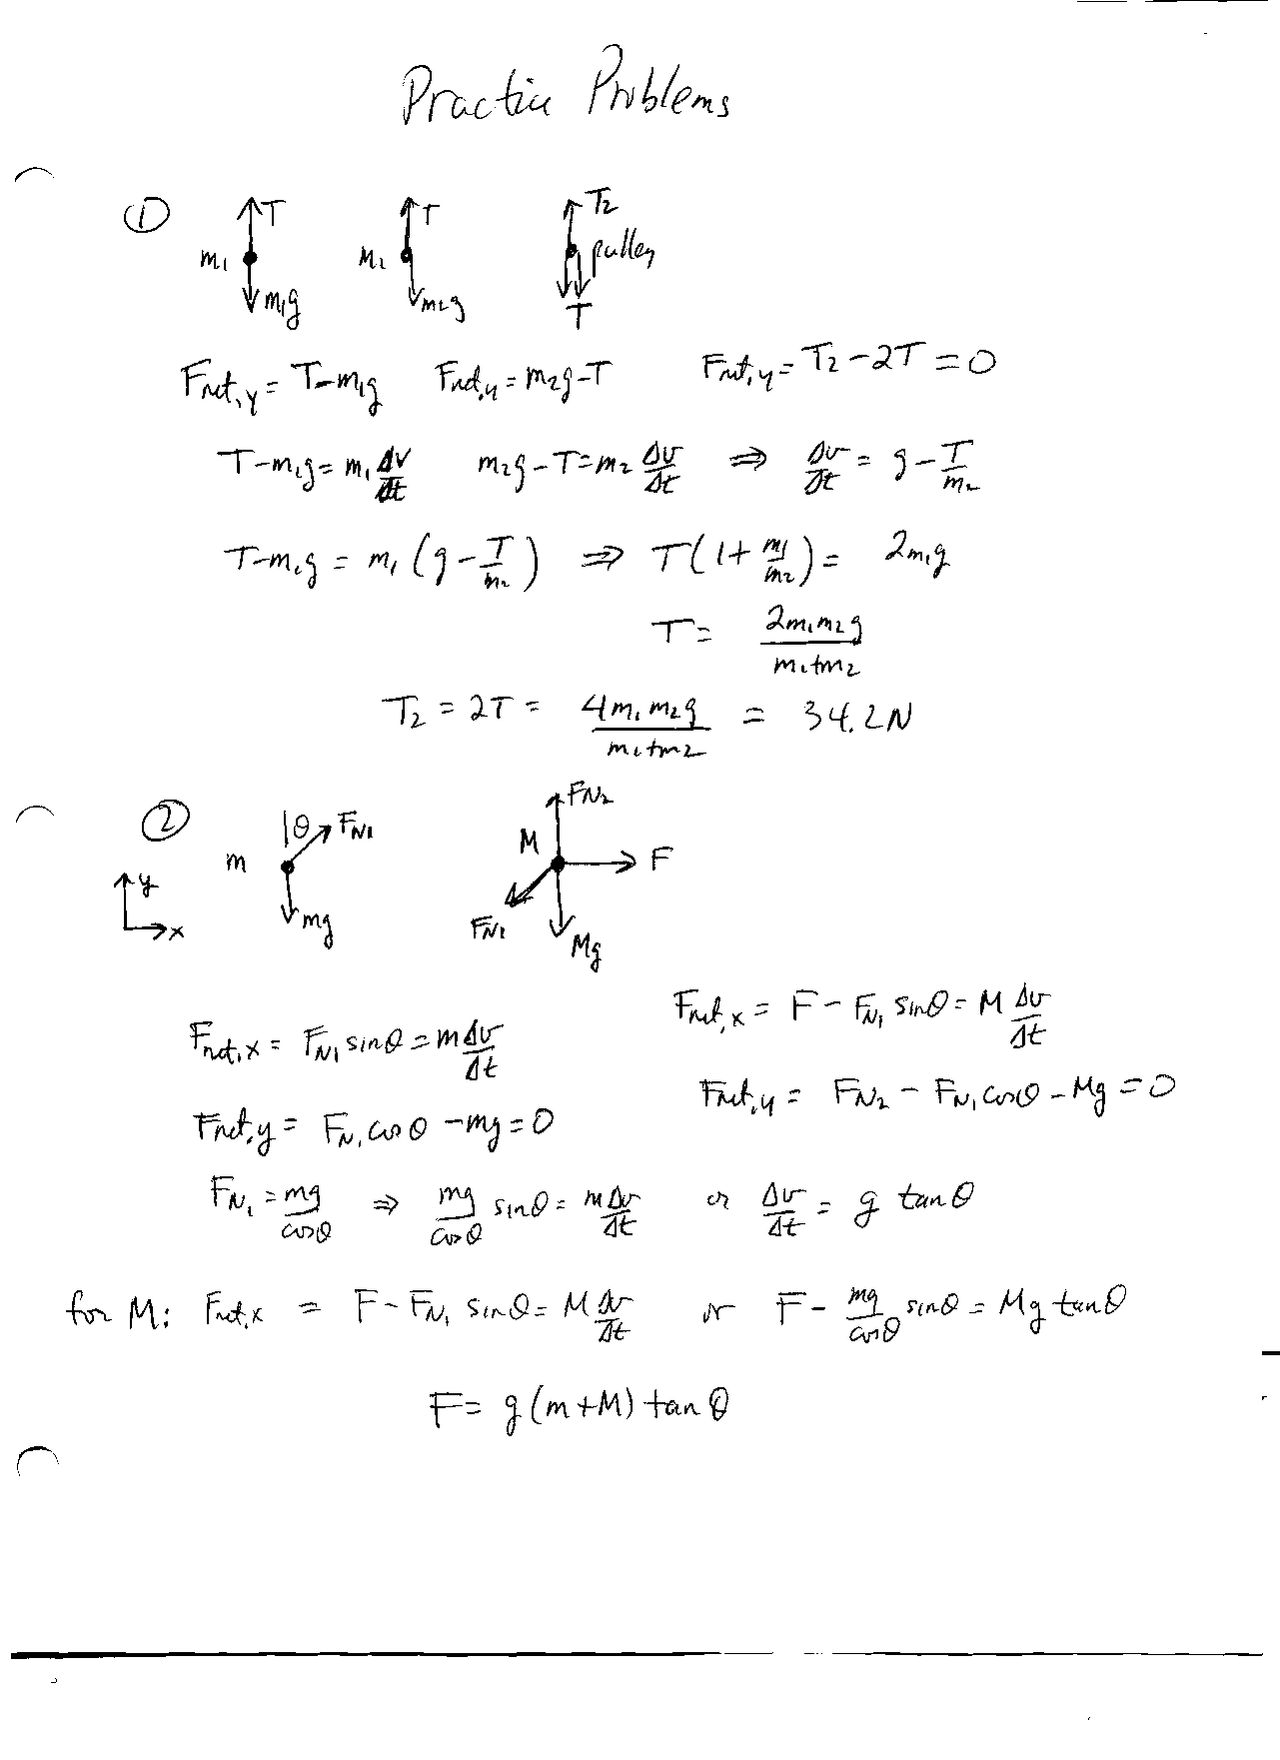 Practice Problems
① T T T₂
m₁ m₂ pulley
m₁g m₂g T
Fnet,y = T-m₁g Fnet,y = m₂g-T Fnet,y = T₂ - 2T = 0
T-m₁g = m₁ Δv/Δt m₂g - T = m₂ Δv/Δt ⇒ Δv/Δt = g - T/m₂
T-m₁g = m₁ (g - T/m₂) ⇒ T(1 + m₁/m₂) = 2m₁g
T = 2m₁m₂g/(m₁+m₂)
T₂ = 2T = 4m₁m₂g/(m₁+m₂) = 34.2N
② θ FN₁ FN₂
m M F
y x mg FN₁ Mg
Fnet,x = F - FN₁ sinθ = M Δv/Δt
Fnet,x = FN₁ sinθ = m Δv/Δt
Fnet,y = FN₂ - FN₁ cosθ - Mg = 0
Fnet,y = FN₁ cosθ - mg = 0
FN₁ = mg/cosθ ⇒ mg/cosθ sinθ = m Δv/Δt or Δv/Δt = g tanθ
for M: Fnet,x = F - FN₁ sinθ = M Δv/Δt or F - mg/cosθ sinθ = Mg tanθ
F = g(m+M) tanθ